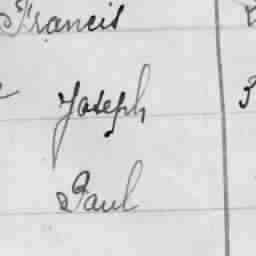 Francis
Joseph
Paul